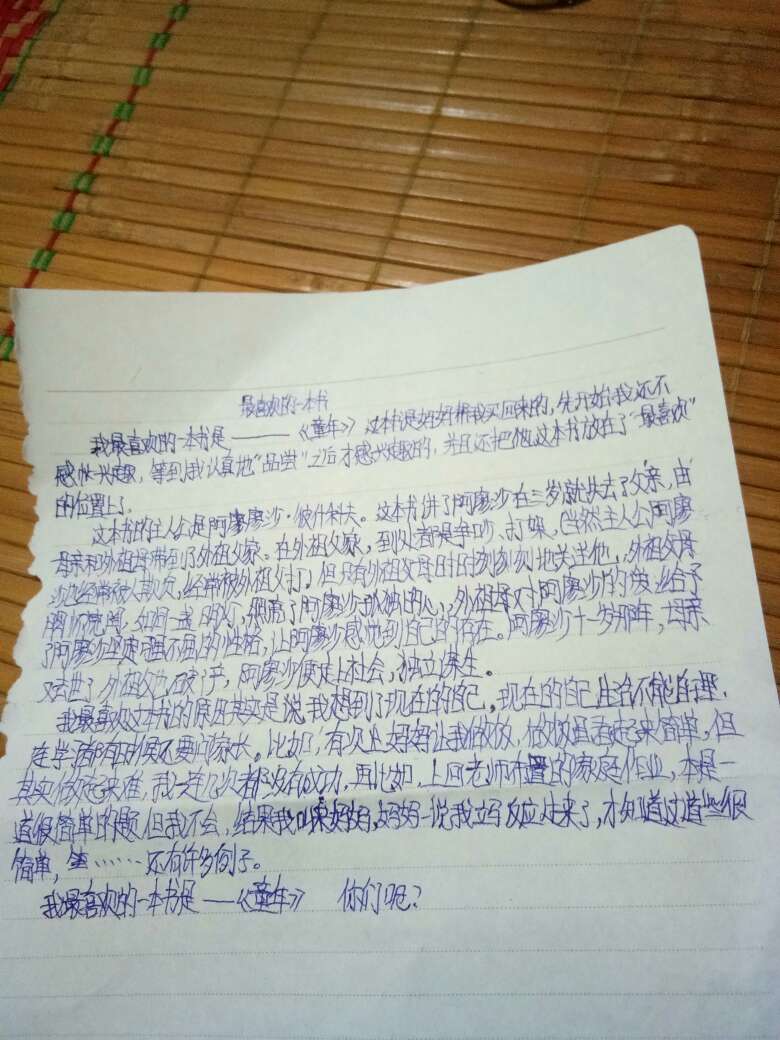 最喜欢的一本书
我最喜欢的一本书是——《童年》这本书是妈妈帮我买回来的,先开始我还不
感兴趣,等到我认真地“品尝”之后才感兴趣的,并且还把他这本书放在了“最喜欢”
的位置上了。
这本书的主人公是阿廖沙·彼什科夫。这本书讲了阿廖沙在三岁就失去了父亲,由
母亲和外祖母带到了外祖父家。在外祖父家,到处都是争吵、打架,当然主人公阿廖
沙也经常被人欺负,经常被外祖父打。但只有外祖父母时时刻刻地关注他,外祖母
满怀,如同一盏明灯,照亮了阿廖沙孤独的心,外祖母对阿廖沙的给予
了阿廖沙坚强不屈的性格,让阿廖沙感觉到自己的存在。阿廖沙十一岁那年,母亲
去世了外祖父也破了产,阿廖沙便走上社会,独立谋生。
我最喜欢这本书的原因其实是说,我想到了现在的自己,现在的自己生活不能自理,
连学习都有时候还要问家长。比如,有次上妈妈让我做饭,做饭虽看起来简单,但
其实做起来难,我一连几次都没有成功,再比如,上回老师布置的家庭作业,本是一
道很简单的题但我不会,结果我叫来妈妈,妈妈一说我立马反应过来了,才知道这道些很
简单,……还有许多例子。
我最喜欢的一本书是——《童年》 你们呢?